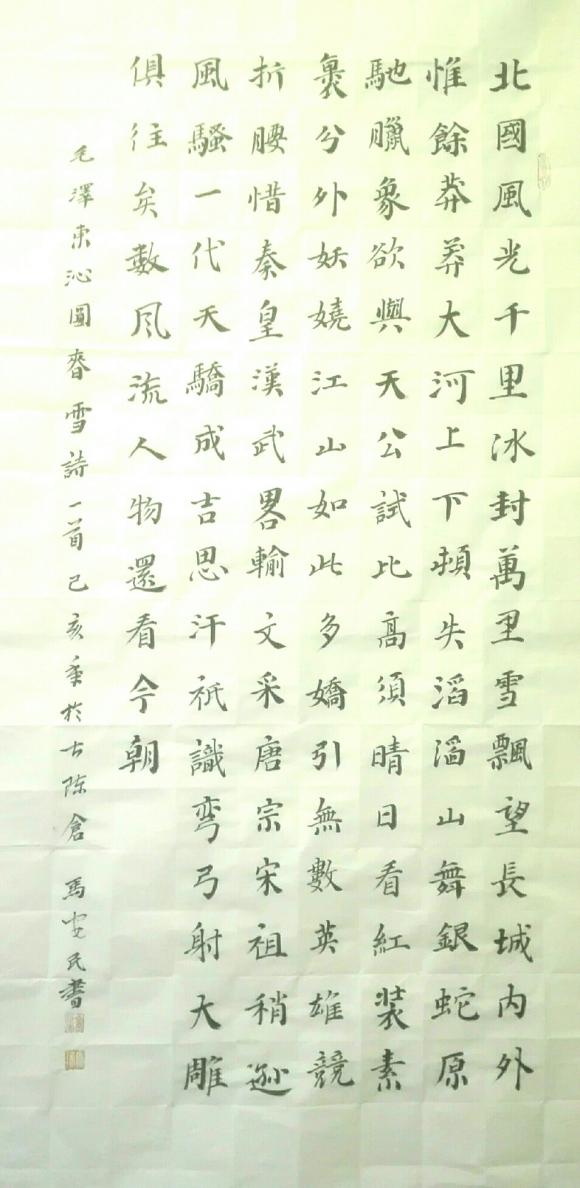 北國風光千里冰封萬里雪飄望長城内外
惟餘莽莽大河上下頓失滔滔山舞銀蛇原
馳臘象欲與天公試比高須晴日看紅裝素
裹兮外妖嬈江山如此多嬌引無數英雄競
折腰惜秦皇漢武畧輸文采唐宗宋祖稍遜
風騷一代天驕成吉思汗祇識弯弓射大雕
俱往矣數风流人物還看今朝
毛澤東沁園春雪詩一首己亥年於古陈倉 馬安民書